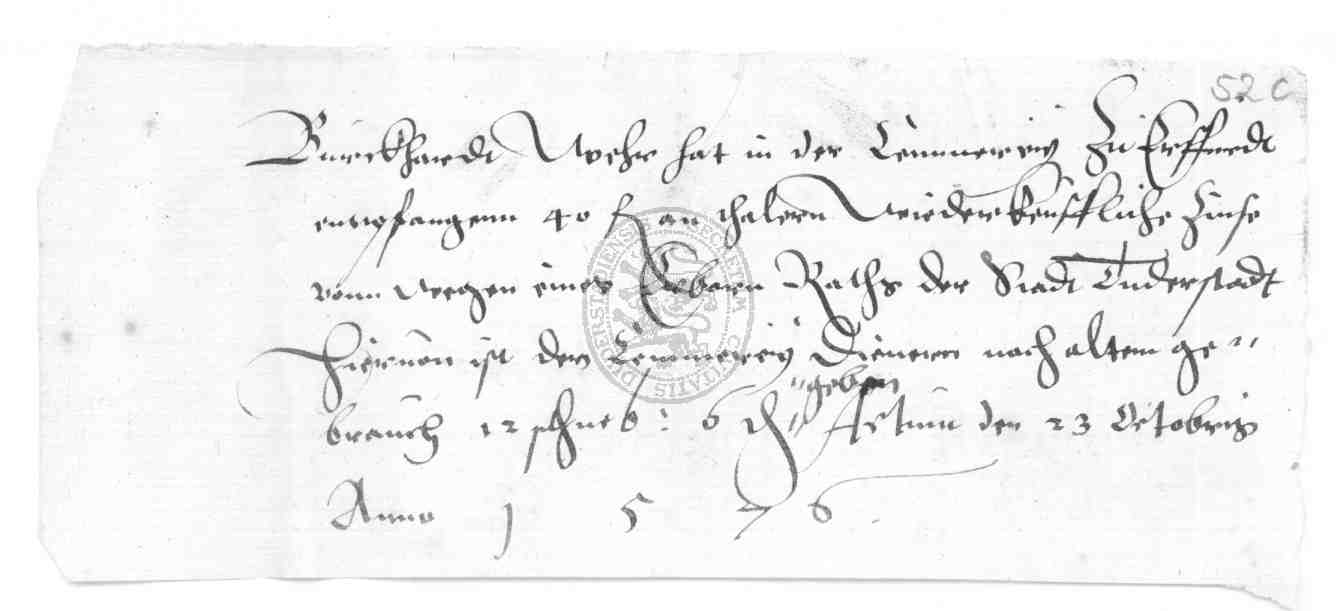 52 c
Burckhardt Wehr hat in der Cemmerey Zu Erffurdt
empfangenn 40 fl an thalern Wiederkeuffliche Zinse
vonn wegen eines Erbarn Raths der Stadt Duderstadt
Hieruon ist den Cemmerey Dienern nach altem ge„
„geben
brauch 12 schneb: 6 ₰ Actum den 23 Octobris
Anno 1 5 7 6